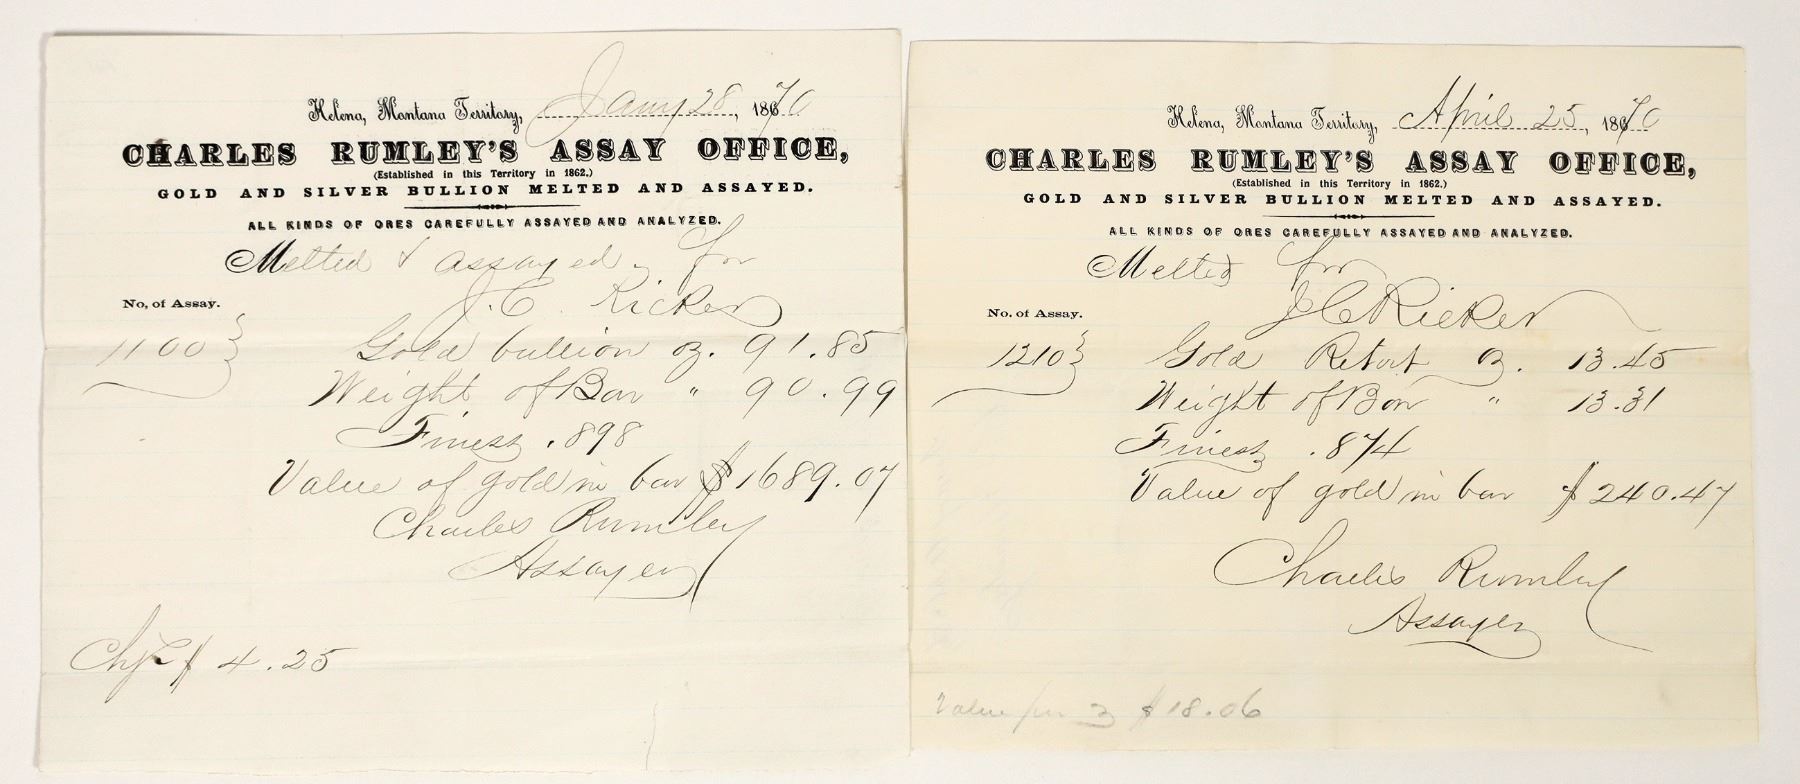 Helena, Montana Territory, Jany 28, 1870
CHARLES RUMLEY'S ASSAY OFFICE,
(Established in this Territory in 1862.)
GOLD AND SILVER BULLION MELTED AND ASSAYED.
ALL KINDS OF ORES CAREFULLY ASSAYED AND ANALYZED.
Melted & assayed for
No. of Assay. J. C. Ricker
1100 } Gold bullion oz. 91.85
Weight of Bar " 90.99
Finess .898
Value of gold in bar $1689.07
Charles Rumley
Assayer
Chg $ 4.25
Helena, Montana Territory, April 25, 1870
CHARLES RUMLEY'S ASSAY OFFICE,
(Established in this Territory in 1862.)
GOLD AND SILVER BULLION MELTED AND ASSAYED.
ALL KINDS OF ORES CAREFULLY ASSAYED AND ANALYZED.
Melted for
No. of Assay. J C Ricker
1210 } Gold Retort oz. 13.45
Weight of Bar " 13.31
Finess .874
Value of gold in bar $ 240.47
Charles Rumley
Assayer
Value per oz $ 18.06